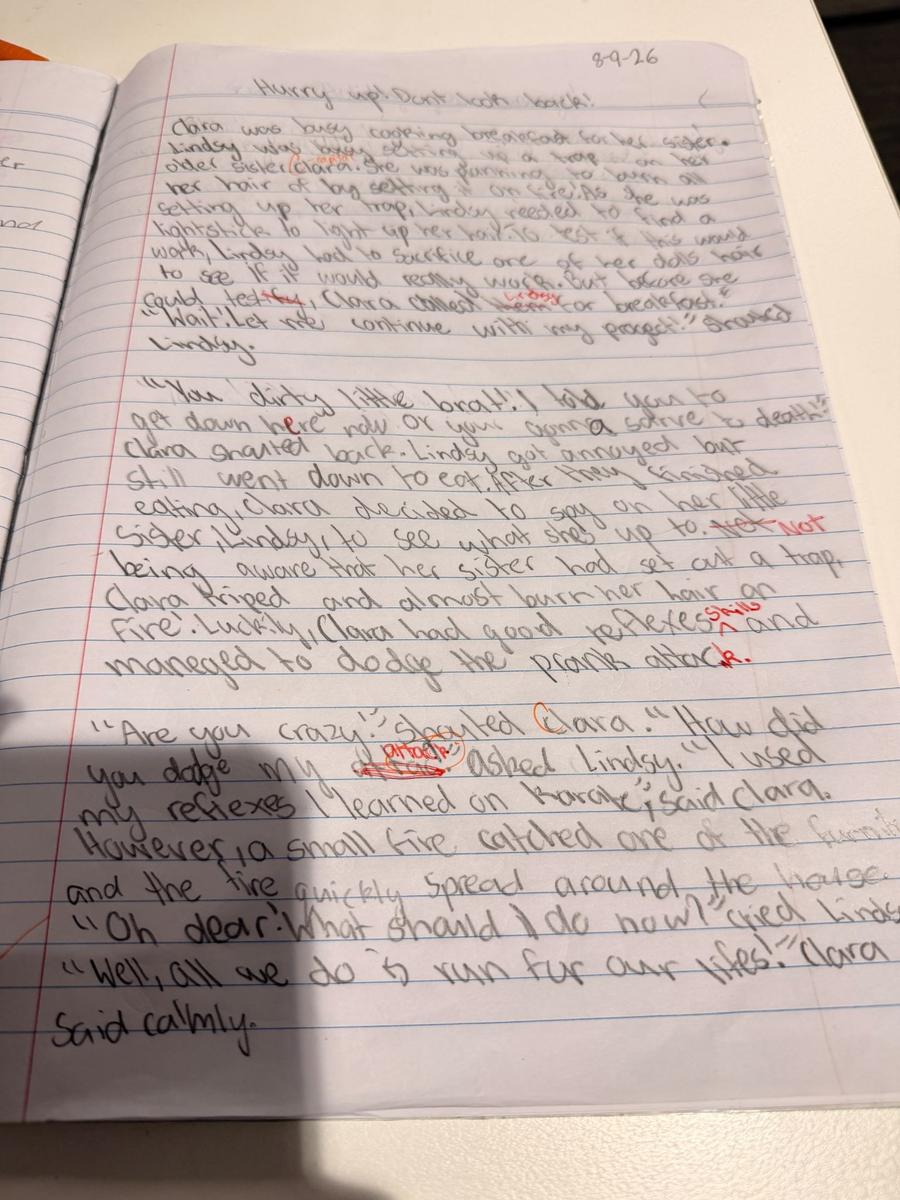 8-9-26
Hurry up! Dont look back!
Clara was busy cooking breakefast for her sister.
Lindsy was busy setting up a trap on her
older sister Clara. She was planning to burn all
her hair of by setting it on fire! As she was
setting up her trap, Lindsy needed to find a
lightstick to light up her hair. To test if this would
work, Lindsy had to sacrifice one of her dolls hair
to see if it would really work. But before she
could test, Clara called Lindsy for breakefast.
"Wait! Let me continue with my project!" shouted
Lindsy.
"You dirty little brat! I told you to
get down here now or your gonna starve to death!"
Clara shouted back. Lindsy got annoyed but
still went down to eat. After they finished
eating, Clara decided to spy on her little
sister, Lindsy, to see what shes up to. Not
being aware that her sister had set out a trap,
Clara triped and almost burn her hair on
fire! Luckily, Clara had good reflexes skills and
maneged to dodge the prank attack.
"Are you crazy!" shouted Clara. "How did
you dodge my attack" asked Lindsy. "I used
my reflexes I learned on Karate", said Clara.
However, a small fire catched one of the
and the fire quickly spread around the house.
"Oh dear! What should I do now?" cried Linds
"Well, all we do is run for our lifes!" Clara
said calmly.
er